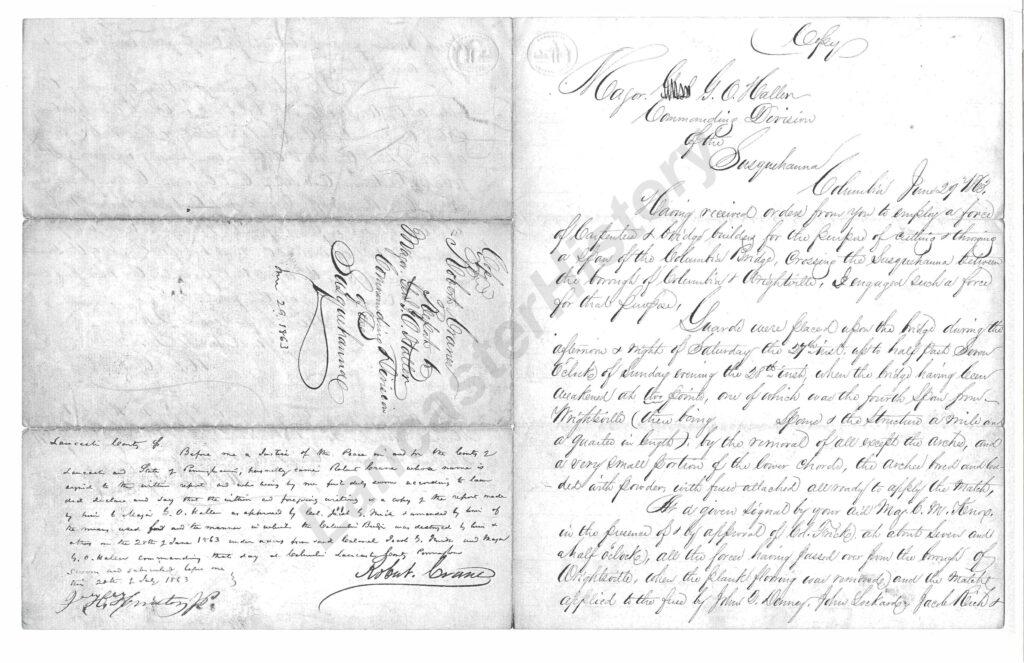 Copy
Robert Crane
Report to
Major G. O. Haller
Commanding Division
of the
Susquehanna
June 29, 1863
Lancaster County SS
Before me a Justice of the Peace in and for the County of
Lancaster and State of Pennsylvania, personally came Robert Crane whose name is
signed to the within report and who being by me first duly sworn according to law
did declare and say that the within and foregoing writing is a copy of the report made
by him to Major G. O. Haller as approved by Col. Jacob G. Frick & amended by him of
the means used and the manner in which the Columbia Bridge was destroyed by him &
others on the 28th of June 1863 under orders from said Colonel Jacob G. Frick and Major
G. O. Haller commanding that day at Columbia Lancaster County Pennsylvania
Sworn and subscribed before me
this 20th of July 1863
Robert Crane
Copy
Major G. O. Haller
Commanding Division
of the
Susquehanna
Columbia June 29th 1863.
Having received orders from you to employ a force
of Carpenters & bridge builders for the purpose of cutting & throwing
a span of the Columbia Bridge, crossing the Susquehanna between
the borough of Columbia & Wrightsville, I engaged such a force
for that purpose,
Guards were placed upon the bridge during the
afternoon & night of Saturday the 27th inst. up to half past Seven
O'clock of Sunday evening the 28th inst, when the bridge having been
weakened at two points, one of which was the fourth span from
Wrightsville (there being Spans & the structure a mile and
a quarter in length) by the removal of all except the arches, and
a very small portion of the lower chords, the arches bored and loa-
ded with powder, with fuse attached all ready to apply the match,
At a given signal by your aid Maj. C. M. Knox,
in the presence of & by approval of Col. Frick, at about seven and
a half o'clock, all the forces having passed over from the borough of
Wrightsville, when the plank flooring was removed, and the matches
applied to the fuse by John Q. Denney, John Lockard, Jacob Rich &
lancasterhistory